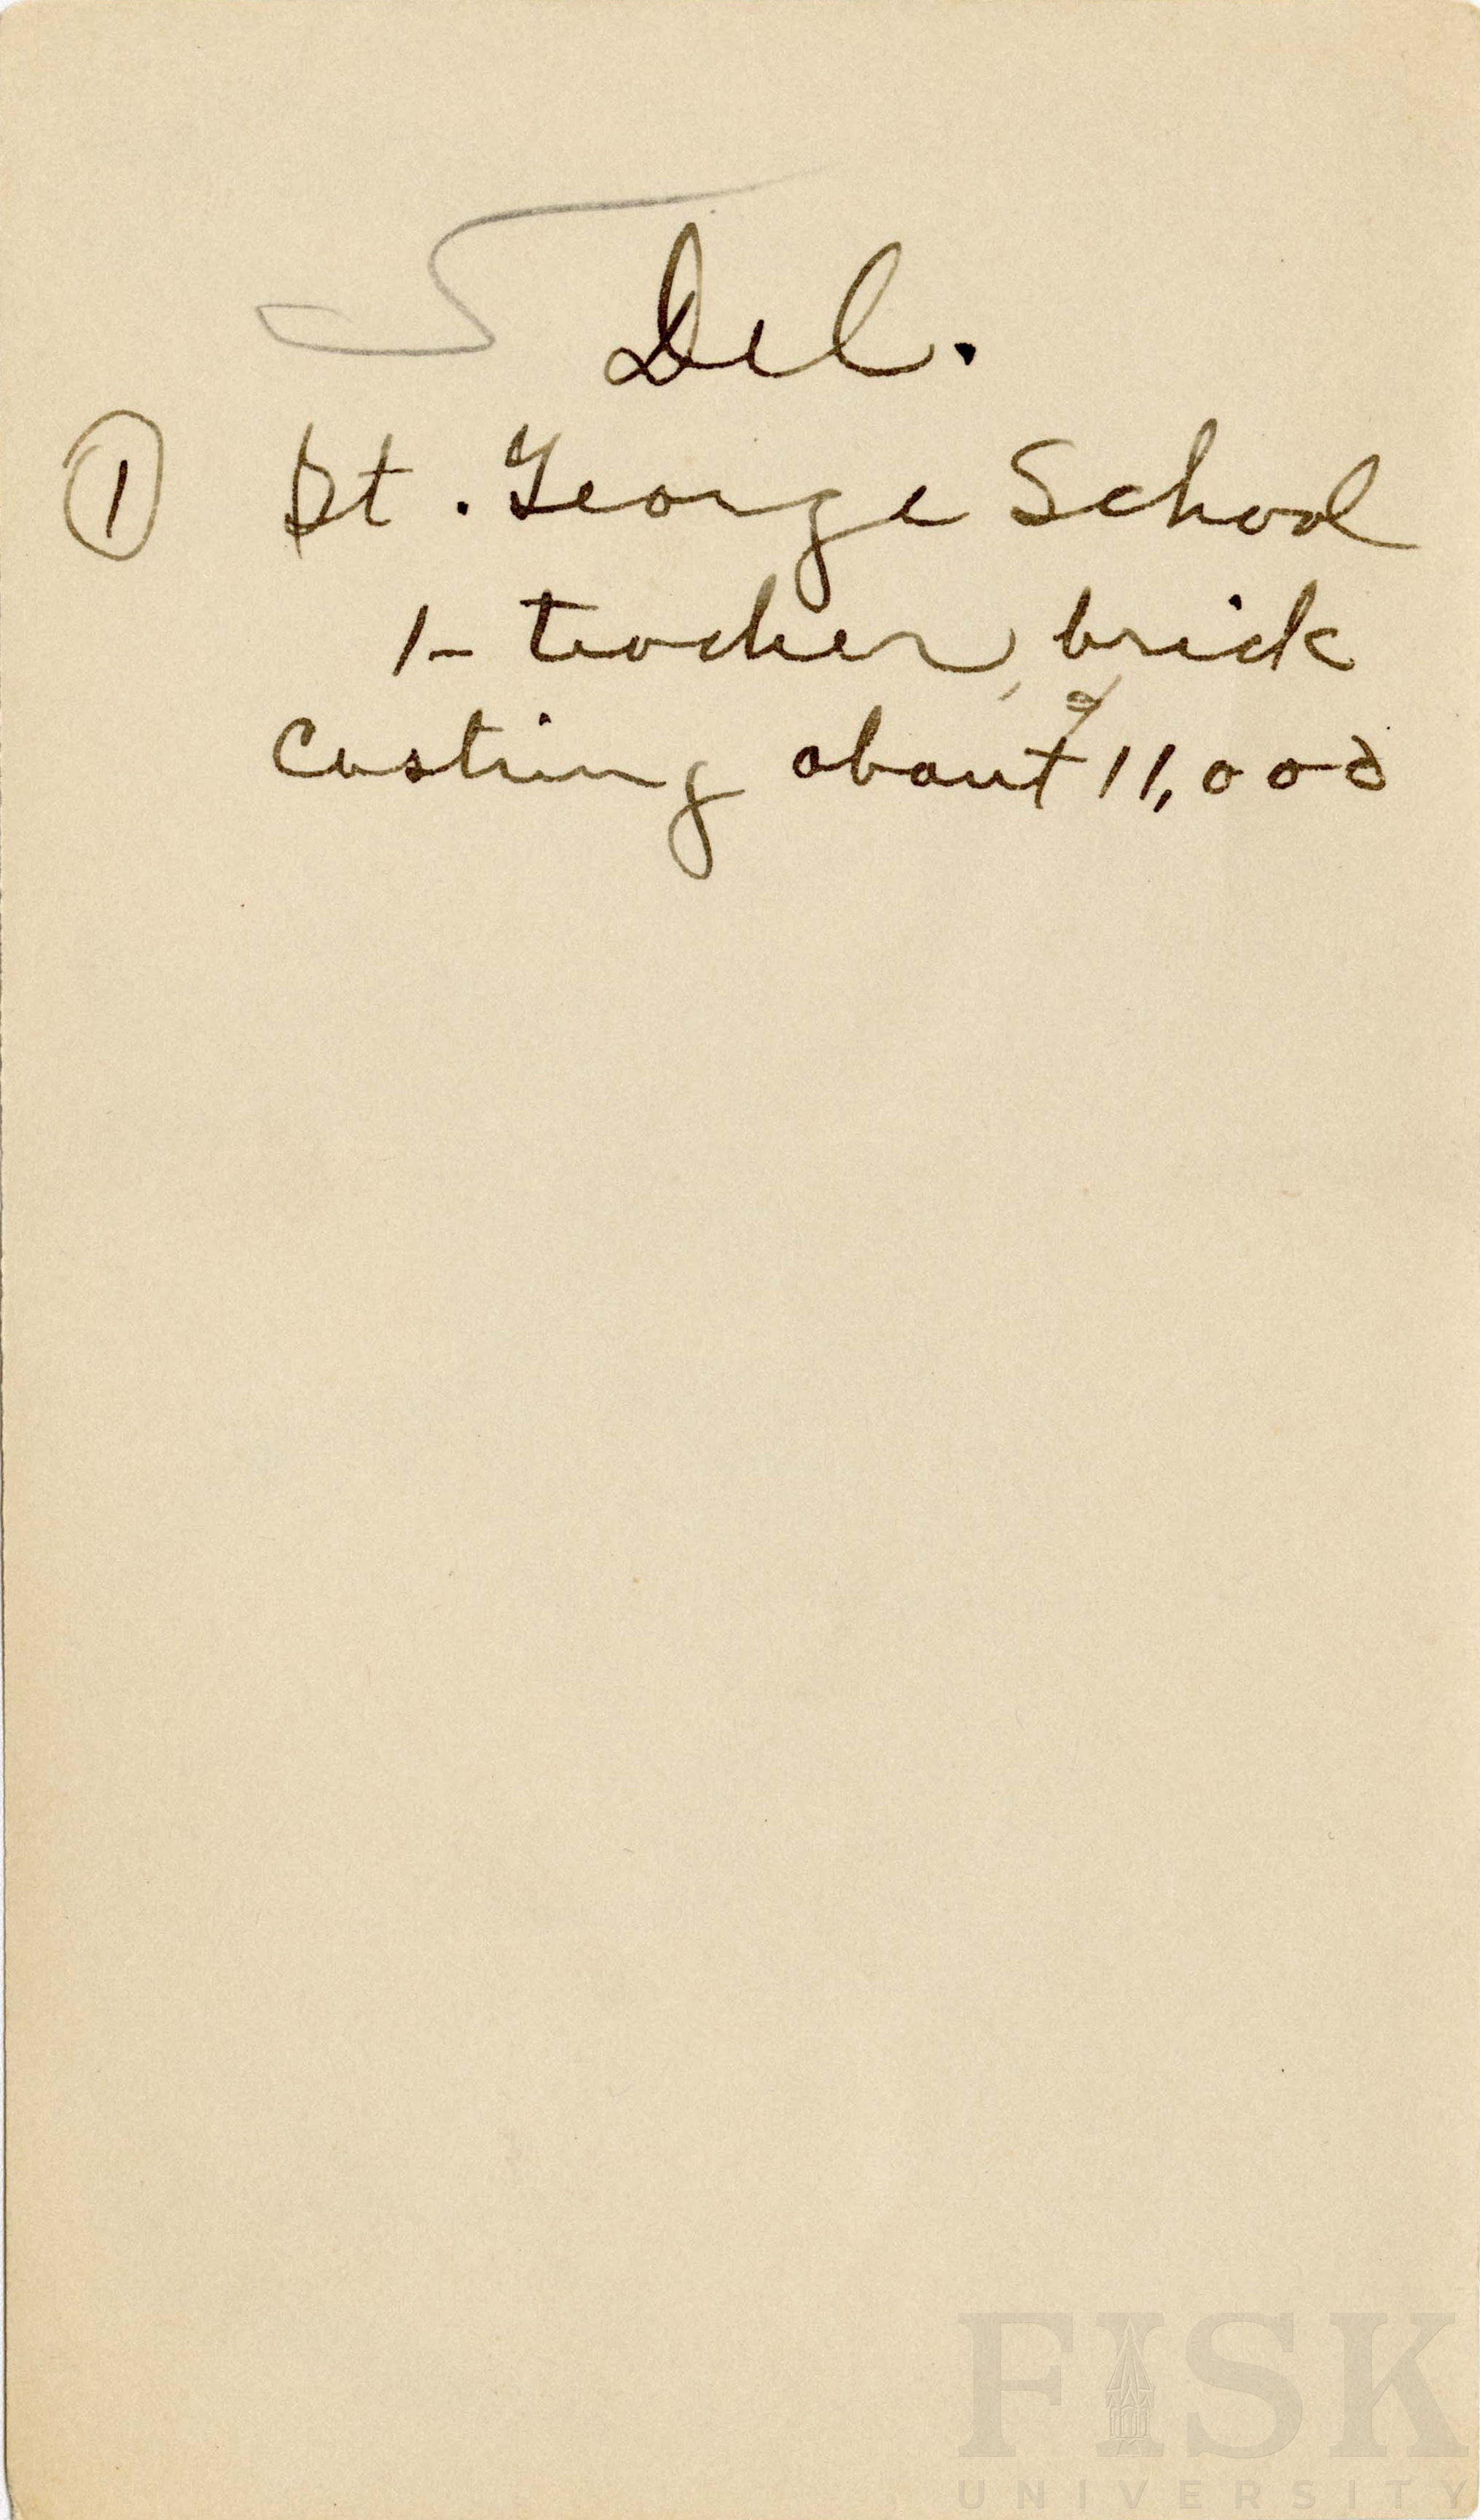 Del.
① St. George School
1- teacher, brick
Costing about $11,000
FISK
UNIVERSITY